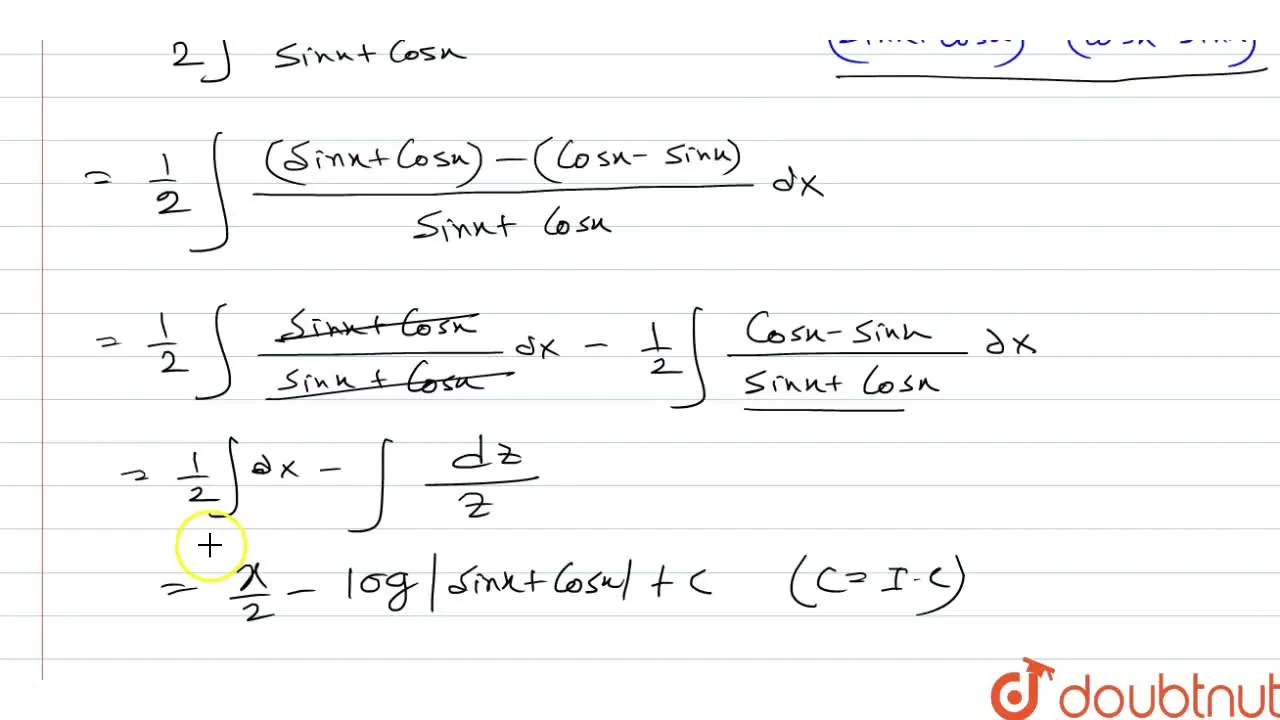 2∫ sinx + cosx
= 1/2 ∫ (sinx + cosx) - (cosx - sinx) / sinx + cosx dx
= 1/2 ∫ sinx + cosx / sinx + cosx dx - 1/2 ∫ cosx - sinx / sinx + cosx dx
= 1/2 ∫ dx - ∫ dz / z
= x/2 - log|sinx + cosx| + c (C = I.C)
doubtnut